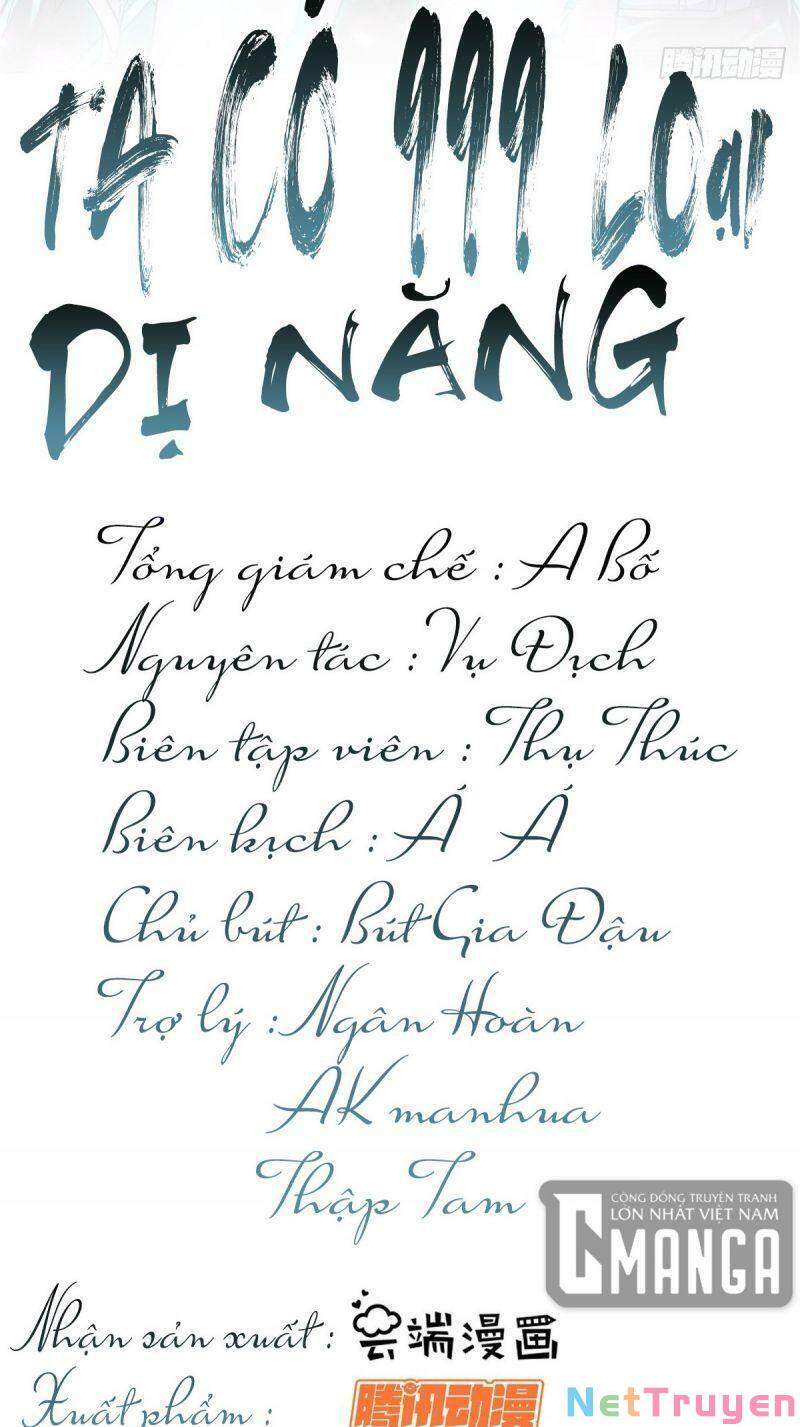 腾讯动漫
TA CÓ 999 LOẠI
DỊ NĂNG
Tổng giám chế : A Bố
Nguyên tác : Vụ Địch
Biên tập viên : Thụ Thúc
Biên kịch : Á Á
Chủ bút : Bút Gia Đậu
Trợ lý : Ngân Hoàn
AK manhua
Thập Tam
CỘNG ĐỒNG TRUYỆN TRANH
LỚN NHẤT VIỆT NAM
CMANGA
Nhận sản xuất : 云端漫画
Xuất phẩm : 腾讯动漫
NetTruyen